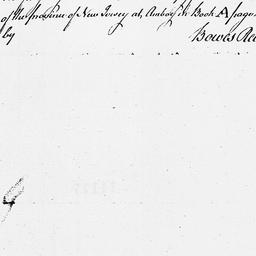 of the province of New Jersey at Amboy in Book A page
by Bowes Ree